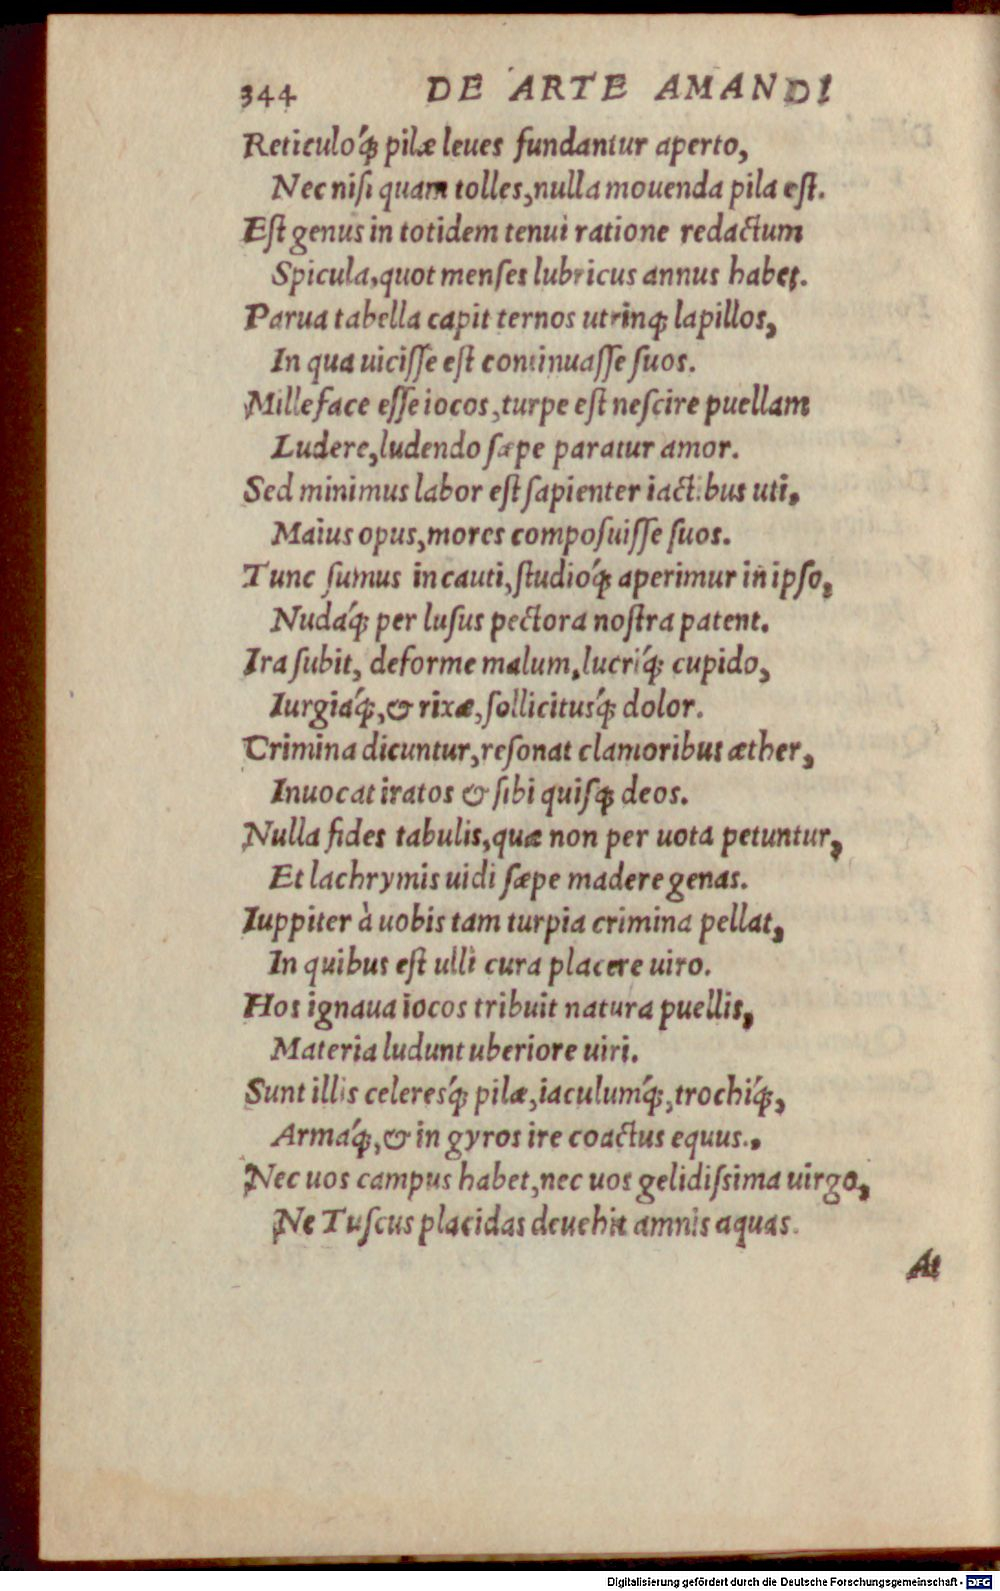 344 DE ARTE AMANDI
Reticuloq́ꝫ pilæ leues fundantur aperto,
Nec niſi quam tolles, nulla mouenda pila eſt.
Eſt genus in totidem tenui ratione redactum
Spicula, quot menſes lubricus annus habet.
Parua tabella capit ternos utrinqꝫ lapillos,
In qua uiciſſe eſt continuaſſe ſuos.
Mille face eſſe iocos, turpe eſt neſcire puellam
Ludere, ludendo ſæpe paratur amor.
Sed minimus labor eſt ſapienter iactibus uti,
Maius opus, mores compoſuiſſe ſuos.
Tunc ſumus incauti, ſtudioq́ꝫ aperimur in ipſo,
Nudaq́ꝫ per luſus pectora noſtra patent.
Ira ſubit, deforme malum, lucriq́ꝫ cupido,
Iurgiaq́ꝫ, & rixæ, ſollicitusq́ꝫ dolor.
Crimina dicuntur, reſonat clamoribus æther,
Inuocat iratos & ſibi quiſqꝫ deos.
Nulla fides tabulis, quæ non per uota petuntur,
Et lachrymis uidi ſæpe madere genas.
Iuppiter à uobis tam turpia crimina pellat,
In quibus eſt ulli cura placere uiro.
Hos ignaua iocos tribuit natura puellis,
Materia ludunt uberiore uiri.
Sunt illis celeresq́ꝫ pilæ, iaculumq́ꝫ, trochiq́ꝫ,
Armaq́ꝫ, & in gyros ire coactus equus.,
Nec uos campus habet, nec uos gelidiſsima uirgo,
Ne Tuſcus placidas deuehit amnis aquas.
At
Digitalisierung gefördert durch die Deutsche Forschungsgemeinschaft - DFG